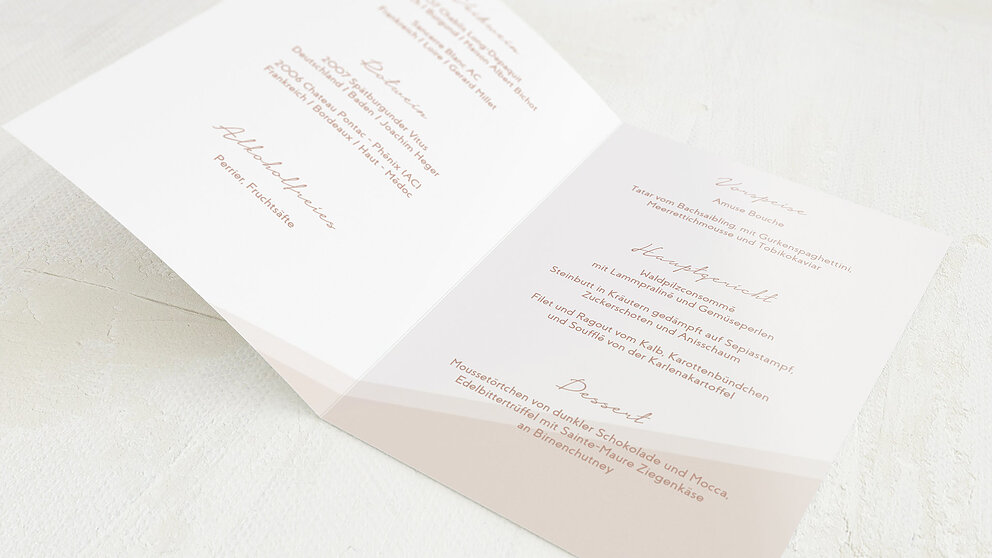 Chablis Long-Depaquit
/ Burgund / Maison Albert Bichot
Sancerre Blanc AC
Frankreich / Loire / Gerard Millet
Rotwein
2007 Spätburgunder Vitus
Deutschland / Baden / Joachim Heger
2006 Chateau Pontac - Phénix (AC)
Frankreich / Bordeaux / Haut - Médoc
Alkoholfreies
Perrier, Fruchtsäfte
Vorspeise
Amuse Bouche
Tatar vom Bachsaibling, mit Gurkenspaghettini,
Meerrettichmousse und Tobikokaviar
Hauptgericht
Waldpilzconsommé
mit Lammpraliné und Gemüseperlen
Steinbutt in Kräutern gedämpft auf Sepiastampf,
Zuckerschoten und Anisschaum
Filet und Ragout vom Kalb, Karottenbündchen
und Soufflé von der Karlenakartoffel
Dessert
Moussetörtchen von dunkler Schokolade und Mocca,
Edelbittertrüffel mit Sainte-Maure Ziegenkäse
an Birnenchutney